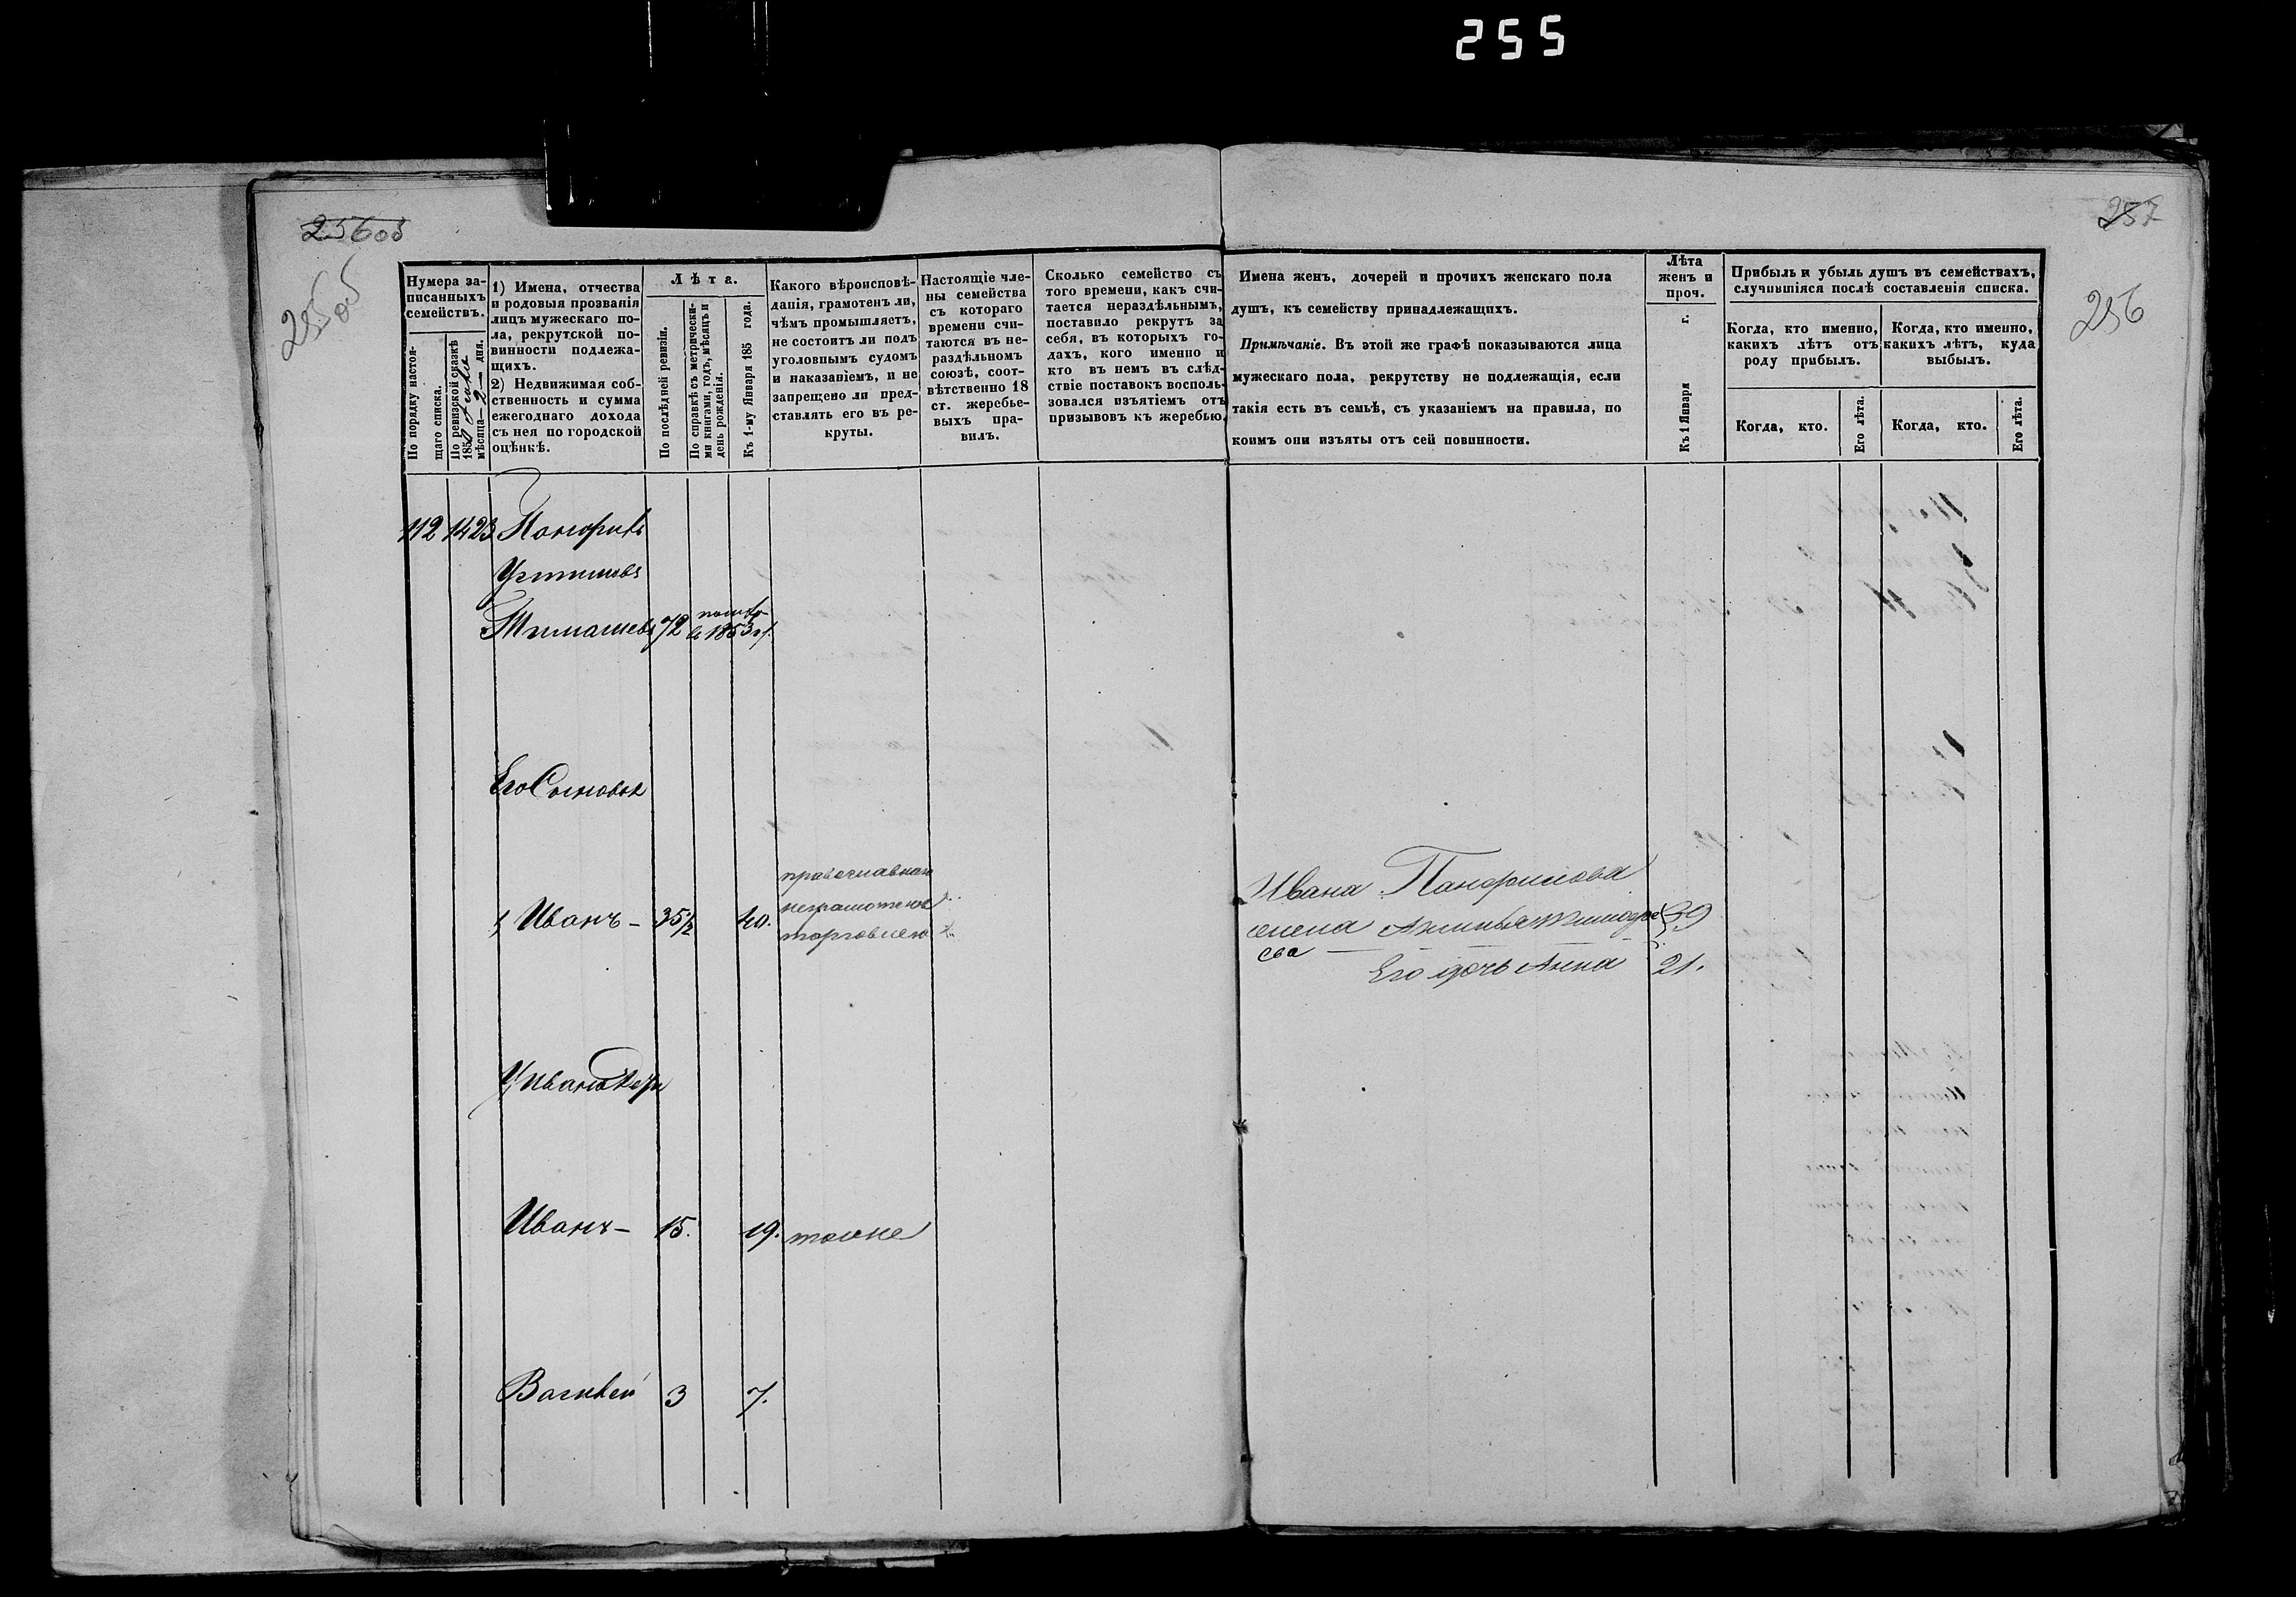 255
256об
257
255об
256
Нумера за-
писанныхъ
семействъ.
По порядку настоя-
щаго списка.
По ревизской сказкѣ
185
мѣсяца 2 дня.
1) Имена, отчества
и родовыя прозванія
лицъ мужескаго по-
ла, рекрутской по-
винности подлежа-
щихъ.
2) Недвижимая соб-
ственность и сумма
ежегоднаго дохода
съ нея по городской
оцѣнкѣ.
Лѣта.
По послѣдней ревизіи.
По справкѣ съ метрически-
ми книгами, годъ, мѣсяцъ и
день рожденія.
Къ 1-му Января 185 года.
Какого вѣроисповѣ-
данія, грамотенъ ли,
чѣмъ промышляетъ,
не состоитъ ли подъ
уголовнымъ судомъ
и наказаніемъ, и не
запрещено ли пред-
ставлять его въ ре-
круты.
Настоящіе чле-
ны семейства
съ котораго
времени счи-
таются въ не-
раздѣльномъ
союзѣ, соот-
вѣтственно 18
ст. жеребье-
выхъ пра-
вилъ.
Сколько семейство съ
того времени, какъ счи-
тается нераздѣльнымъ,
поставило рекрутъ за
себя, въ которыхъ го-
дахъ, кого именно и
кто въ немъ въ слѣд-
ствіе поставокъ восполь-
зовался изъятіемъ отъ
призывовъ къ жеребью.
Имена женъ, дочерей и прочихъ женскаго пола
душъ, къ семейству принадлежащихъ.
Примѣчаніе. Въ этой же графѣ показываются лица
мужескаго пола, рекрутству не подлежащія, если
такія есть въ семьѣ, съ указаніемъ на правила, по
коимъ они изъяты отъ сей повинности.
Лѣта
женъ и
проч.
Къ 1 Января г.
Прибыль и убыль душъ въ семействахъ,
случившіяся послѣ составленія списка.
Когда, кто именно,
какихъ лѣтъ отъ
роду прибылъ.
Когда, кто именно,
какихъ лѣтъ, куда
выбылъ.
Когда, кто.
Его лѣта.
Когда, кто.
Его лѣта.
112 1423 Панфилъ
Устиновъ
Тимашевъ 72 въ 1853 г.
Его Сыновья
1, Иванъ - 35½ 40. православнаго
неграмотенъ
торговлею
Ивана Панфилова
жена Аксинья Тимофѣ 39
ева
Его дочь Анна 21.
У Ивана дѣти
Иванъ - 15. 19. тоже
Василей 3 7.